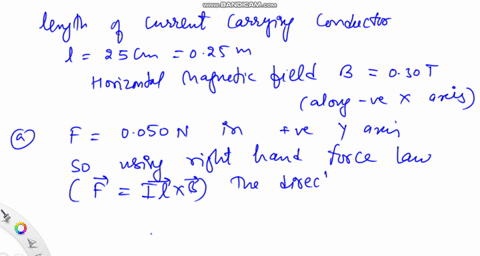 WWW.BANDICAM.COM
length of current carrying conductor
l = 25 cm = 0.25 m
Horizontal magnetic field B = 0.30 T
(along -ve X axis)
(a) F = 0.050 N in +ve Y axis
so using right hand force law
( F⃗ = I l⃗ × B⃗ ) The direc